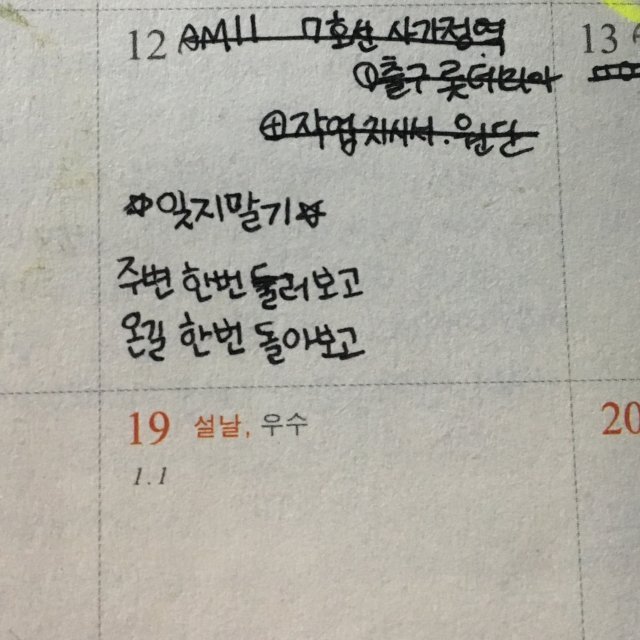 12 AM11 7호선 사가정역 13
①출구 롯데리아
⊕작업지시서. 원단
☆잊지말기☆
주변 한번 둘러보고
온길 한번 돌아보고
19 설날, 우수 20
1.1